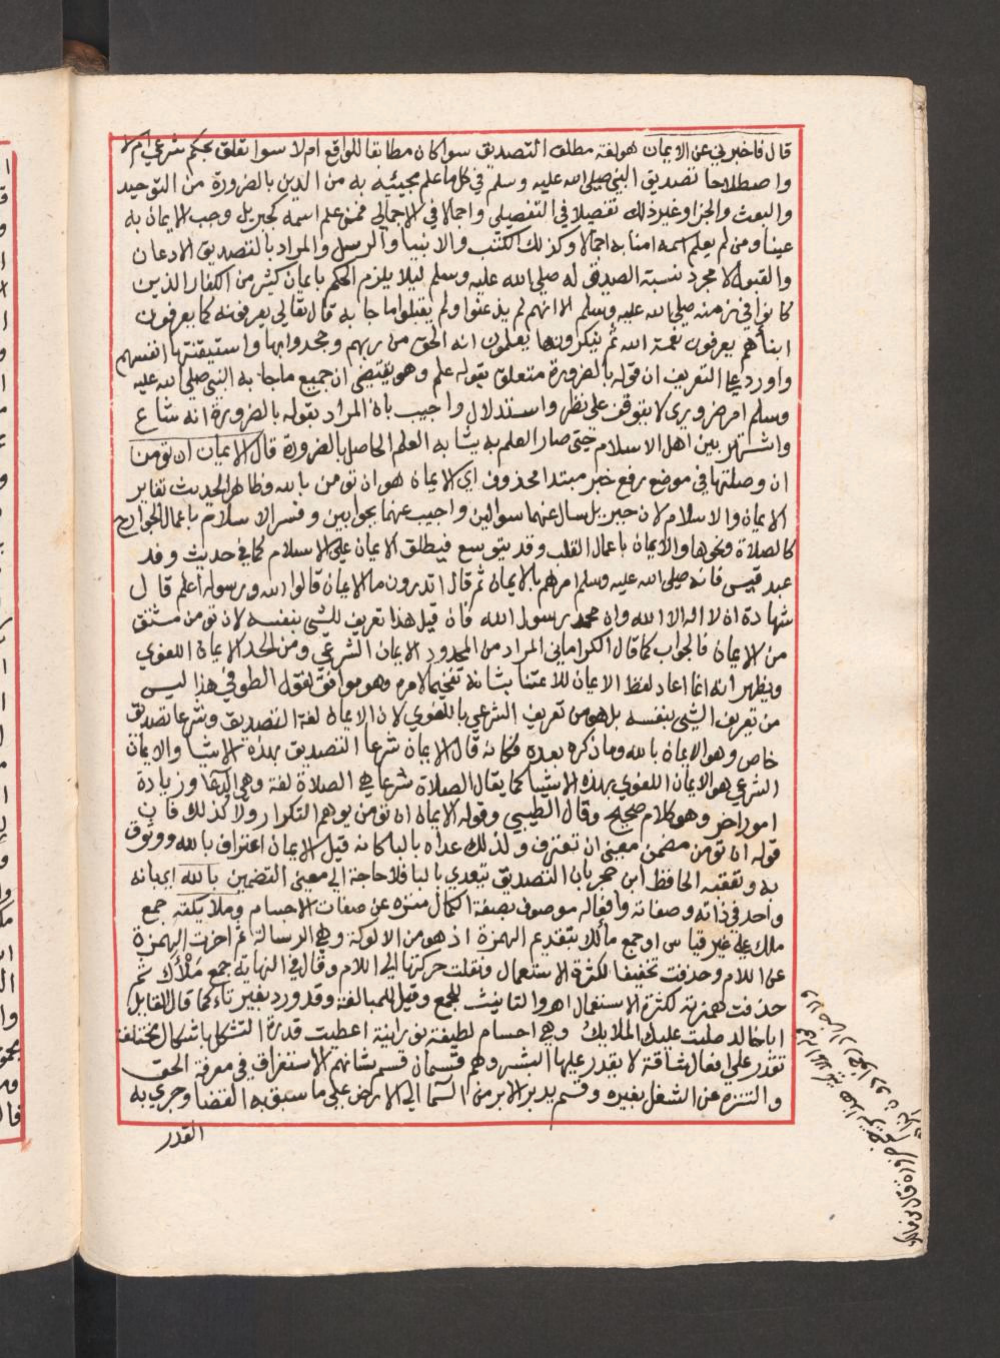 قال فاخبرني عن الايمان هو لغة مطلق التصديق سوا كان مطابقا للواقع ام لا سوا تعلق بحكم شرعي ام لا
واصطلاحا تصديق النبي صلي الله عليه وسلم في كل ما علم مجيئه به من الدين بالضرورة من التوحيد
والبعث والجزا وغير ذلك تفصيلا في التفصيلي واجمالا في الاجمالي فمن علم اسمه كجبريل وجب الايمان به
عينا ومن لم يعلم اسمه امنا به اجمالا وكذلك الكتب والانبيا والرسل والمراد بالتصديق الاذعان
والقبول لا مجرد نسبة الصدق له صلي الله عليه وسلم ليلا يلزم الحكم بايمان كثير من الكفار الذين
كانوا في زمنه صلي الله عليه وسلم الا انهم لم يذعنوا ولم يقبلوا ما جا به قال تعالي يعرفونه كما يعرفون
ابناهم يعرفون نعمة الله ثم ينكرونها يعلمون انه الحق من ربهم وجحدوا بها واستيقنتها انفسهم
واورد علي التعريف ان قوله بالضرورة متعلق بقوله علم وهو يقتضي ان جميع ما جا به النبي صلي الله عليه
وسلم امر ضروري لا يتوقف علي نظر واستدلال واجيب بان المراد بقوله بالضرورة انه شاع
واشتهر بين اهل الاسلام حتى صار العلم به يشابه العلم الحاصل بالضرورة قال الايمان ان تومن
ان وصلتها في موضع رفع خبر مبتدا محذوف اي الايمان هو ان تومن بالله وظاهر الحديث تغاير
الايمان والاسلام لان جبريل سال عنهما سوالين واجيب عنهما بجوابين وفسر الاسلام باعمال الجوارح
كالصلاة ونحوها والايمان باعمال القلب وقد يتوسع فيطلق الايمان علي الاسلام كما في حديث وفد
عبد قيس فانه صلي الله عليه وسلم امرهم بالايمان ثم قال اتدرون ما الايمان قالوا الله ورسوله اعلم قال
شهادة ان لا اله الا الله وان محمد رسول الله فان قيل هذا تعريف للشي بنفسه لان تومن مشتق
من الايمان فالجواب كما قال الكرماني المراد من المحدود الايمان الشرعي ومن الحد الايمان اللغوي
ويظهر انه انما اعاد لفظ الايمان للاعتنا بشانه تفخيما لامره وهو موافق لقول الطوفي هذا ليس
من تعريف الشي بنفسه بل هو من تعريف الشرعي باللغوي لان الايمان لغة التصديق وشرعا تصديق
خاص وهو الايمان بالله وما ذكره بعده فكانه قال الايمان شرعا التصديق بهذه الاشيا والايمان
الشرعي هو الايمان اللغوي بهذه الاشيا كما يقال الصلاة شرعا هي الصلاة لغة وهي الدعا وزيادة
امور اخر وهو كلام صحيح وقال الطيبي وقوله الايمان ان تومن يوهم التكرار ولا كذلك فان
قوله ان تومن مضمن معنى ان تعترف ولذلك عداه بالبا كانه قيل الايمان اعتراف بالله ووثوق
به وتعقبه الحافظ ابن حجر بان التصديق يتعدي بالبا فلا حاجة الي معنى التضمين بالله اي بانه
واحد في ذاته وصفاته وافعاله موصوف بصفة الكمال منزه عن صفات الاجسام وملايكته جمع
ملك علي غير قياس او جمع مألك بتقديم الهمزة اذ هو من الالوكة وهي الرسالة ثم اخرت الهمزة
عن اللام وحذفت تخفيفا لكثرة الاستعمال ونقلت حركتها الي اللام وقال في النهاية جمع ملأك ثم
حذفت همزته لكثرة الاستعمال اهـ والتانيث للجمع وقيل للمبالغة وقد ورد بغير تاء كما قال القايل
ابا خالد صلت عليك الملايك وهي اجسام لطيفة نورانية اعطيت قدرة التشكل باشكال مختلفة
تقدر علي افعال شاقة لا يقدر عليها البشر وهم قسمان قسم شانهم الاستغراق في معرفة الحق
والتنزه عن الشغل بغيره وقسم يدبر الامر من السما الي الارض علي ما سبق به القضا وجري به
القدر